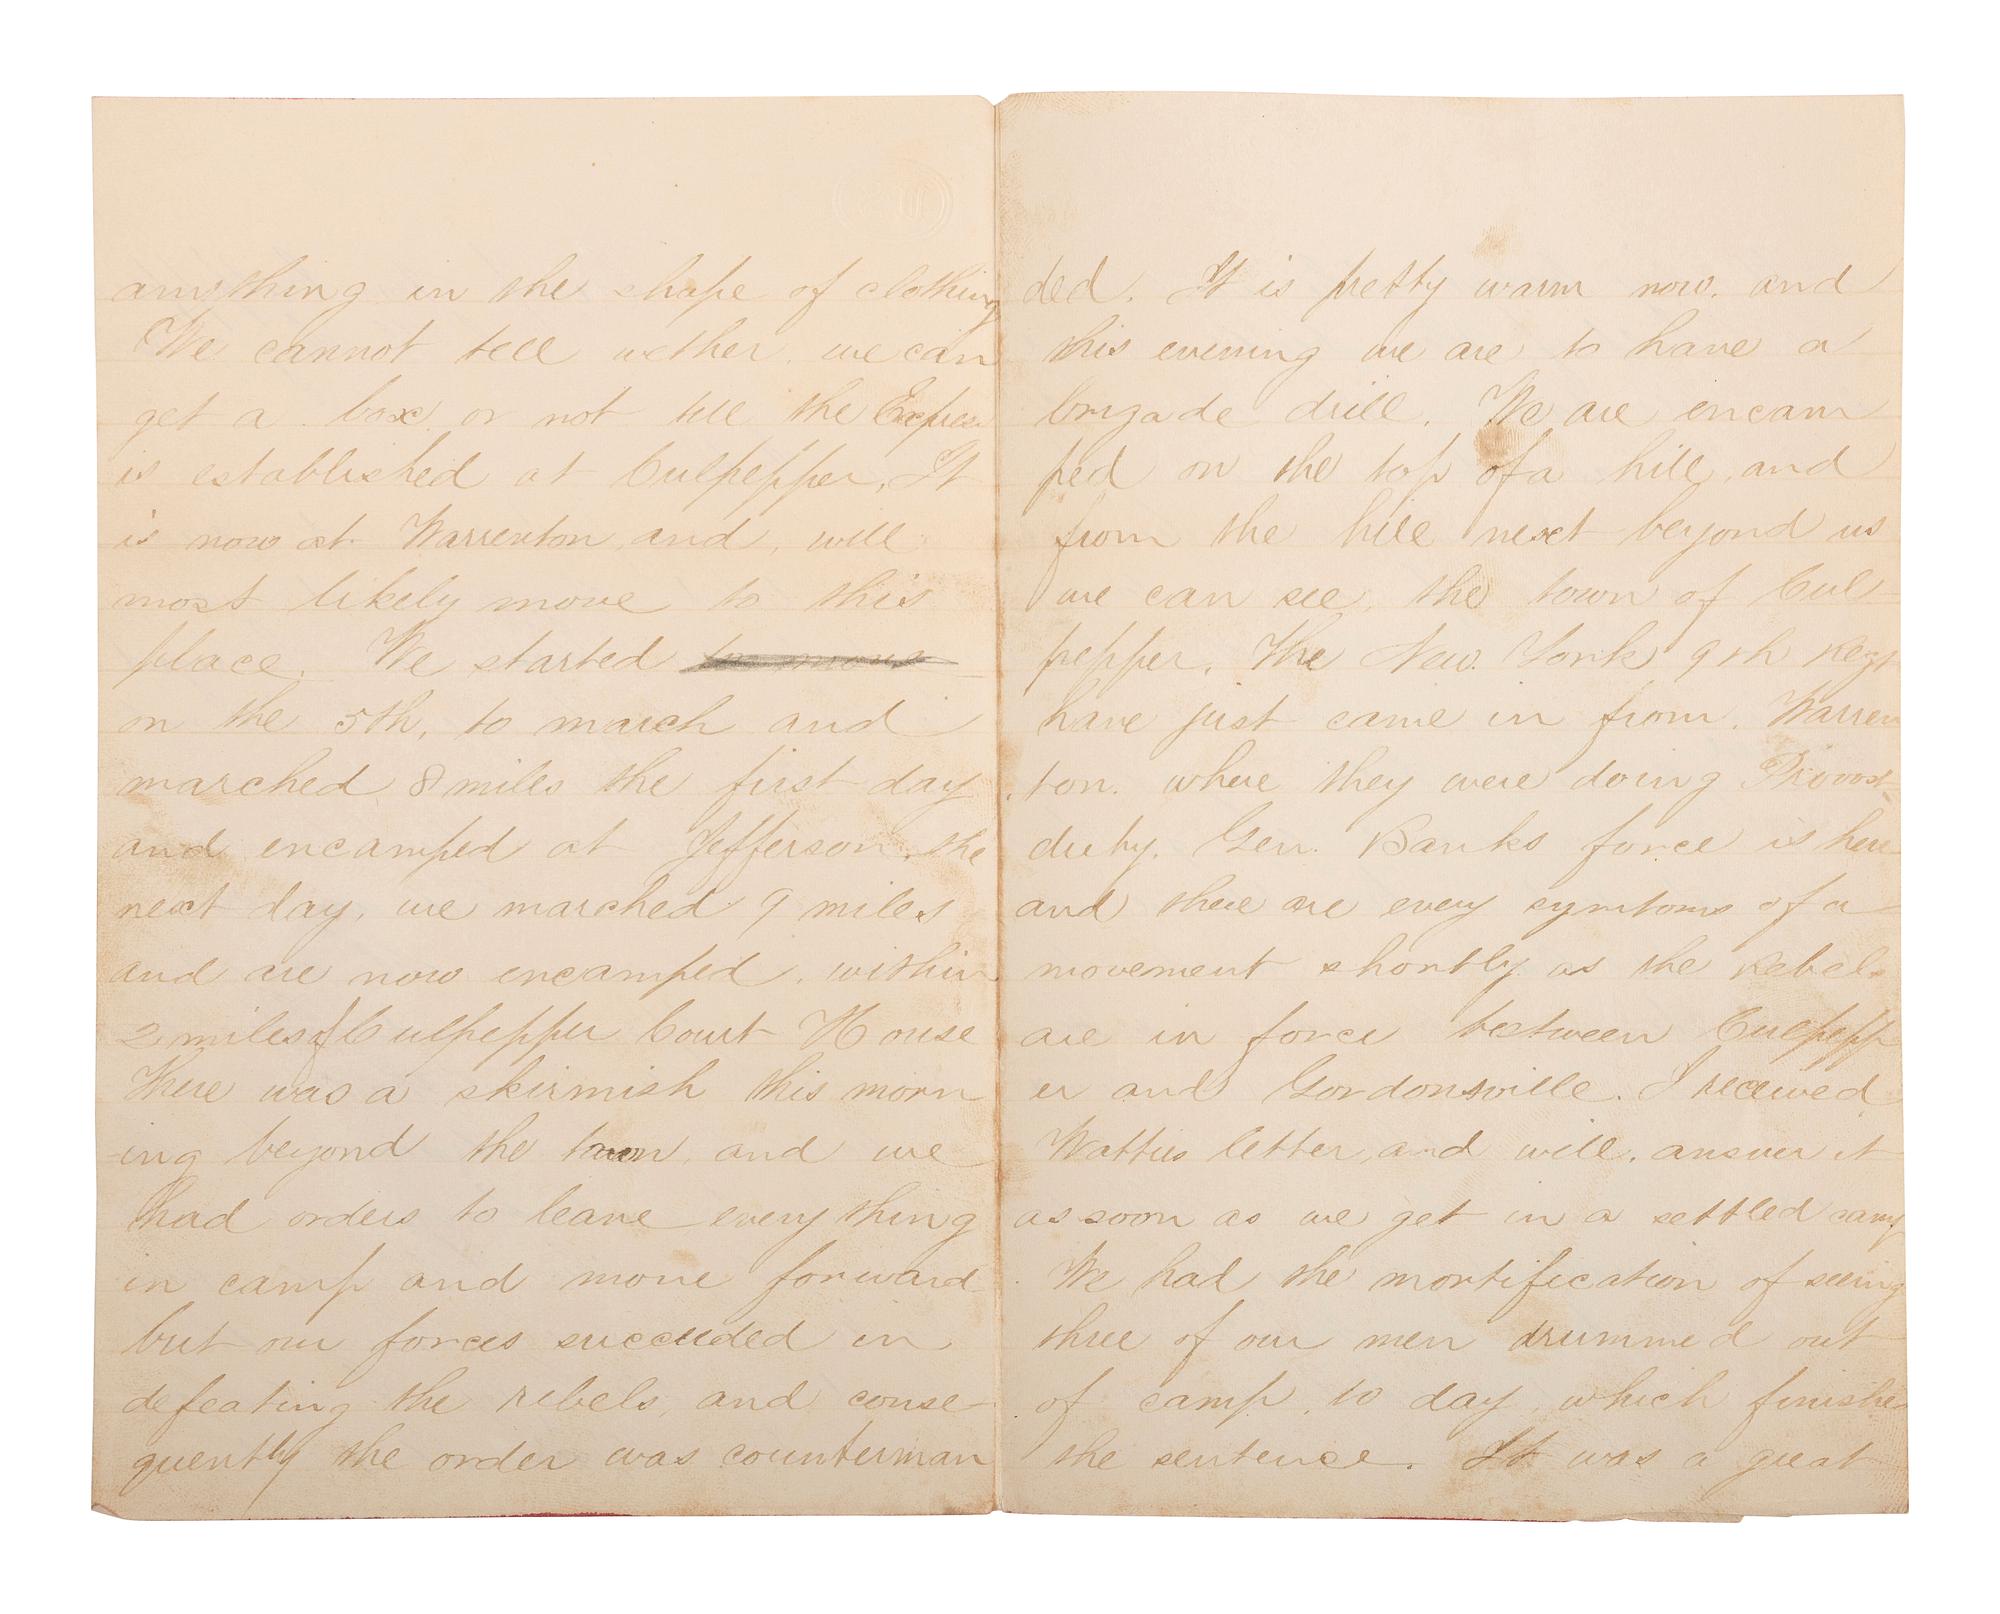 anything in the shape of clothing
We cannot tell wether we can
get a box or not till the Expres
is established at Culpepper, It
is now at Warrenton and, will
most likely move to this
place. We started to move
on the 5th, to march and
marched 8 miles the first day
and encamped at Jefferson, the
next day, we marched 9 miles
and are now encamped, within
2 miles of Culpepper Court House
There was a skirmish this morn
ing beyond the town, and we
had orders to leave every thing
in camp and move forward
but our forces succeeded in
defeating the rebels, and conse-
quently the order was counterman
ded. It is pretty warm now. and
this evening we are to have a
brigade drill. We are encam
ped on the top of a hill, and
from the hill next beyond us
we can see, the town of Cul-
pepper. The New York 9th Regt
have just came in from. Warren
ton. where they were doing Provost
duty. Gen. Banks force is here
and there are every symtoms of a
movement shortly as the Rebels
are in force between Culpepp
er and Gordonsville. I received
Watties letter, and will. answer it
as soon as we get in a settled camp
We had the mortification of seeing
three of our men drummed out
of camp, to day, which finishe
the sentence. It was a great